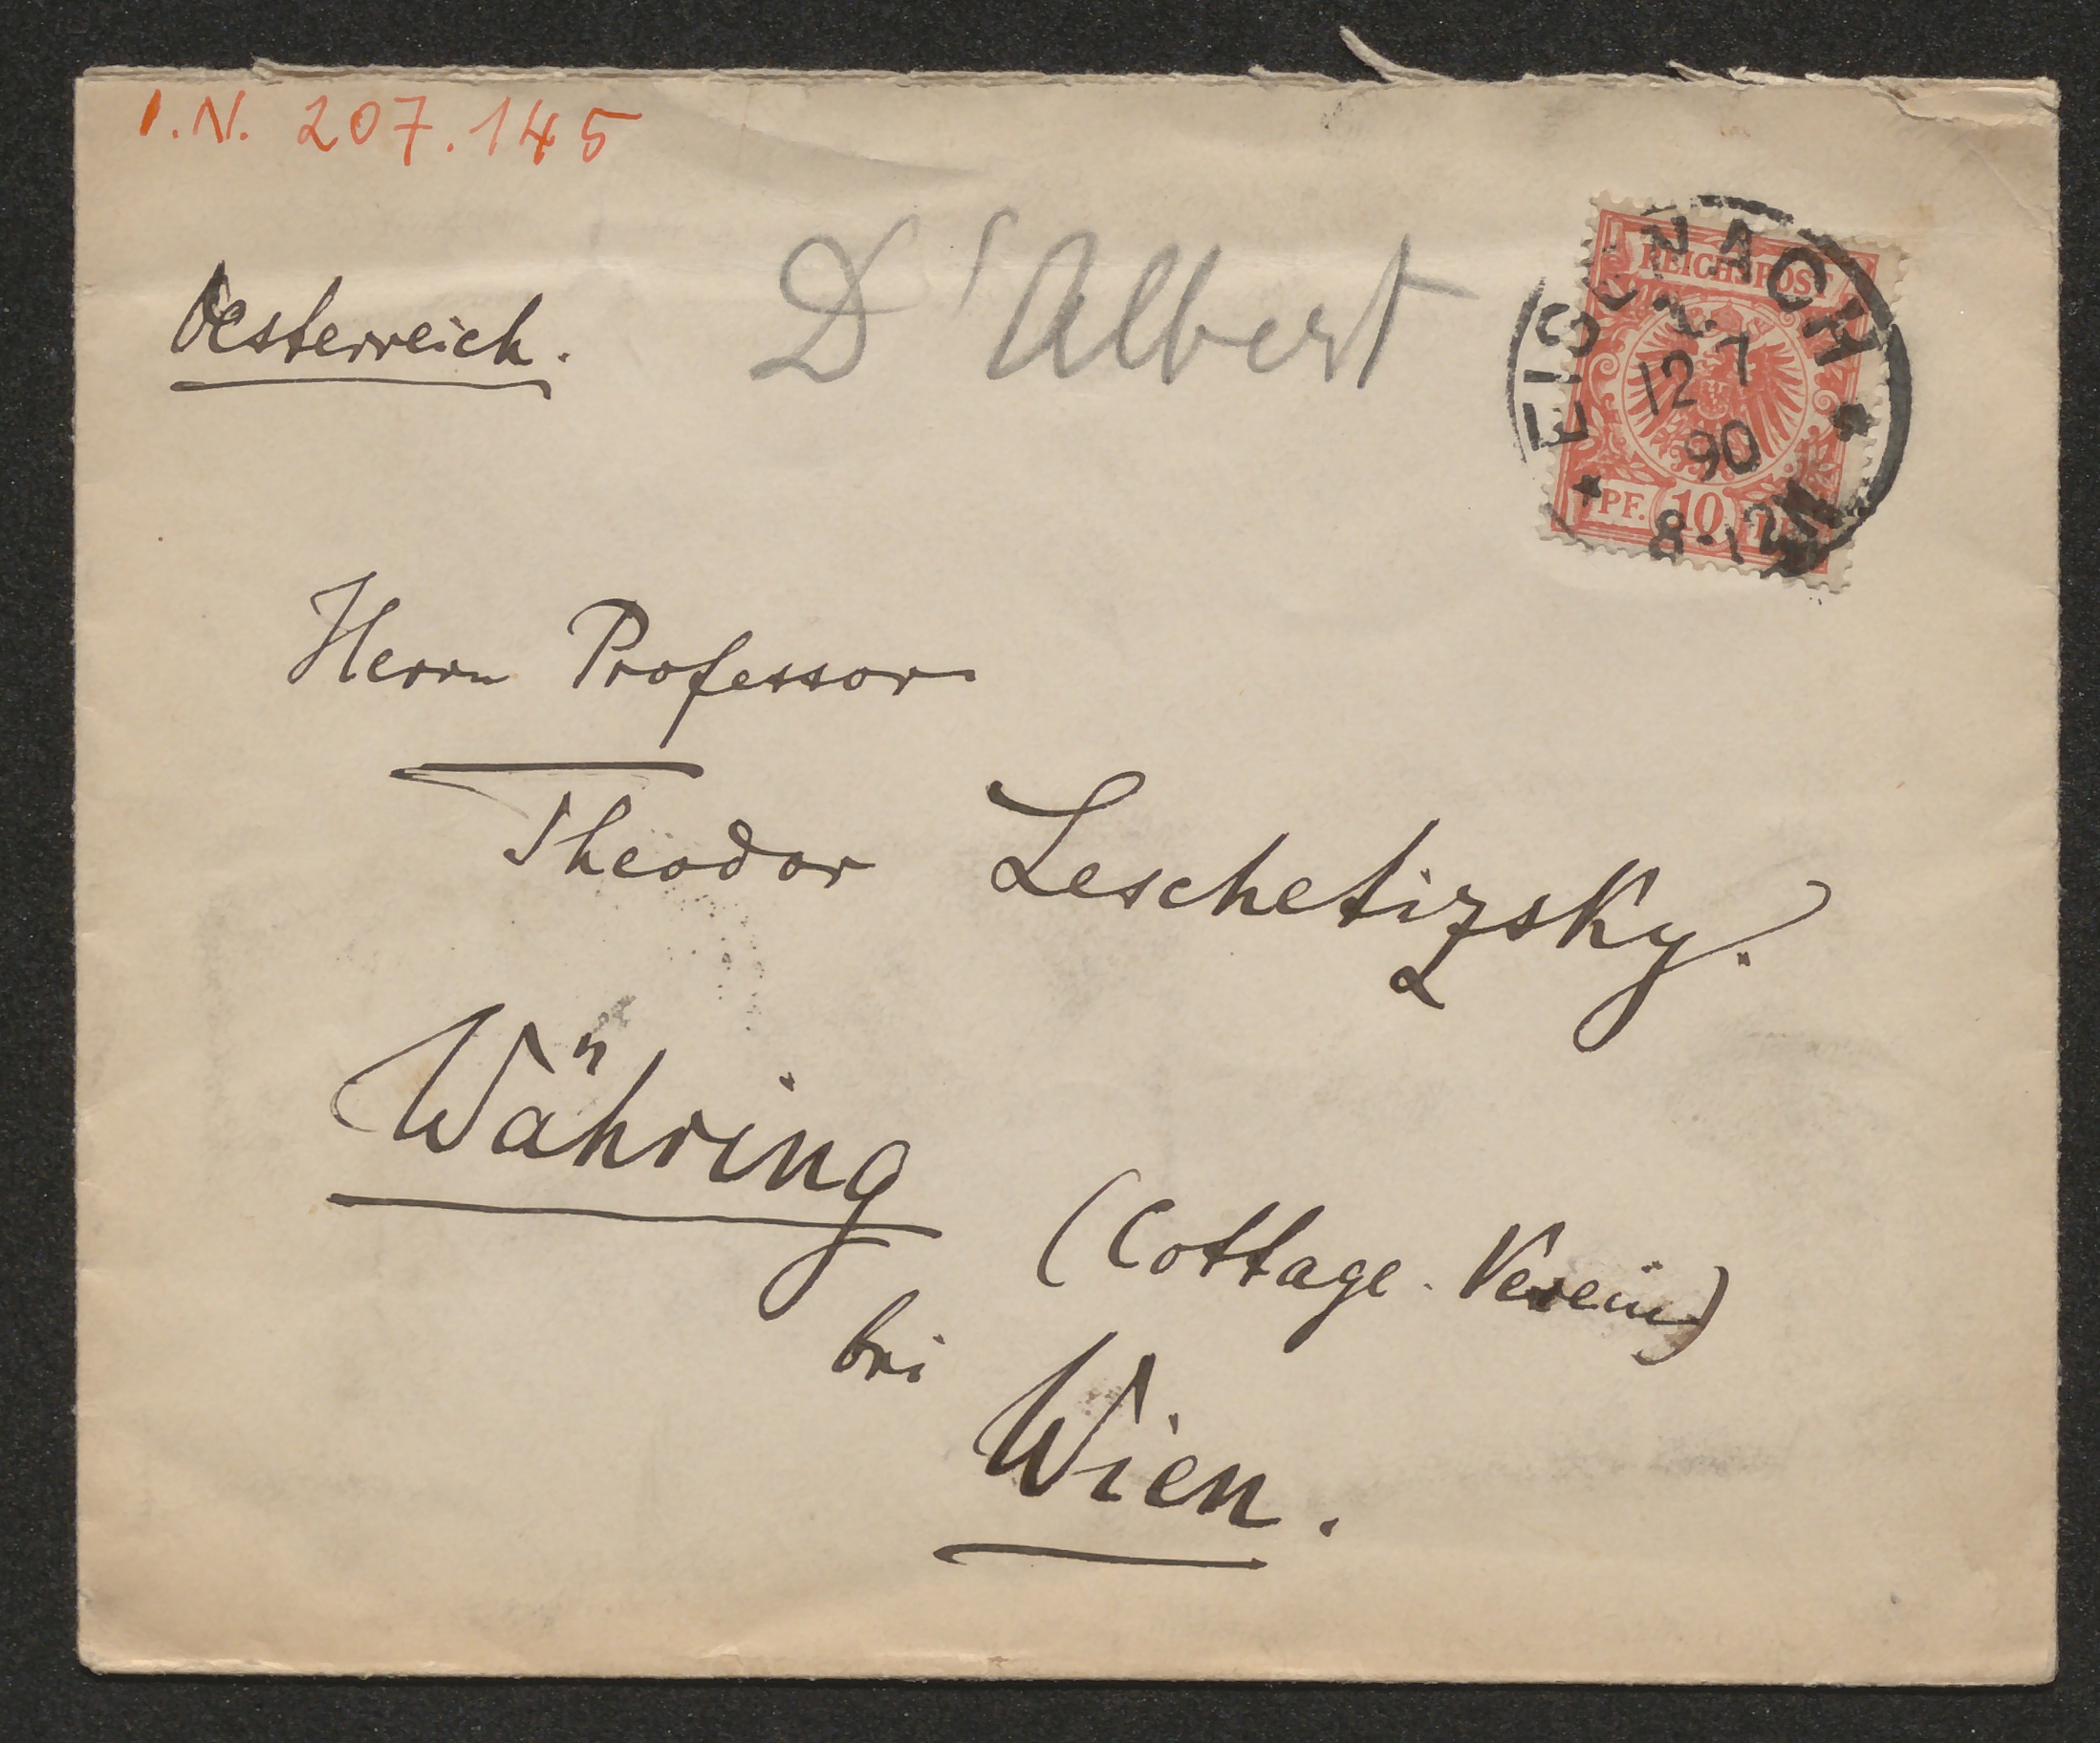 I.N. 207.145
Oesterreich.
D'Albert
EISENACH
REICHSPOST
12 7
90
8-12N
PF. 10
Herrn Professor
Theodor Leschetizsky.
Währing
(Cottage-Verein)
bei
Wien.